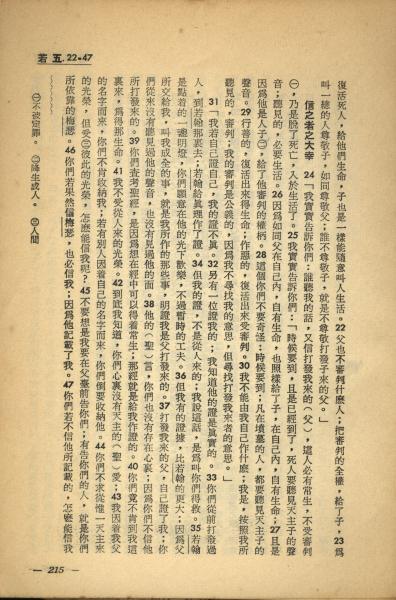 若五.22-47
復活死人，給他們生命，子也是一樣能隨意叫人生活。22父也不審判什麼人；把審判的全權，給了子，23爲
叫一總的人尊敬子，如同尊敬父；誰不尊敬子，就是不尊敬打發子來的父。」
信之者之大幸　24「我實實告訴你們：誰聽我的話，又信打發我來的（父），這人必有常生，不受審判
㊀，乃是脫了死亡，入於生活了。25我實實告訴你們：「時候要到，且是已經到了，死人要聽見天主子的聲
音；聽見的，必要生活。26因爲如同父在自己內，自有生命，也照樣給了子，在自己內，自有生命；27且是
因爲他是人子㊁，給了他審判的權柄。28這個你們不要奇怪：時候要到；凡在墳墓的人，都要聽見天主子的
聲音。29行善的，復活出來得生命；作惡的，復活出來受審判。30我不能由我自己作什麼；我是，按照我所
聽見的，審判；我的審判是公義的，因爲我不尋找我的意思，但尋找打發我來者的意思。」
31「我若自己證自己，我的證不眞。32另有一位證我的；我知道他的證是眞實的。33你們從前打發過
人，到若翰那裏去；若翰給眞理作了證。34但我的證，不是從人來的；我說這話，是爲叫你們得救。35若翰
是點着的一盞明燈，你們願意在他的光下歡樂，不過暫時的工夫。36但我有的證據，比若翰的更大；因爲父
所交給我，叫我成全的事，就是我所作的那些事，明證我是父打發來的。37打發我來的父，自己證了我；你
們從來沒有聽見過他的聲音，也沒有見過他的面。38他的（聖）言，你們也沒有存在心裏；因爲你們不信他
所打發來的。39你們查考聖經，是因爲想在經中可以得着常生；那經就是給我作證的。40你們竟不肯到我這
裏來，爲得那生命。41我不受從人來的光榮。42到底我知道，你們心裏沒有天主的（聖）愛；43我因着我父
的名字而來，你們不肯收納我；若有別人因着自己的名字而來，你們倒要收納他。44你們不求從惟一天主來
的光榮，但受㊂彼此的光榮，怎麼能信我呢？45不要想是我要在父臺前告你們；有告你們的人，就是你們
所依靠的梅瑟。46你們若果然信梅瑟，也必信我；因爲他記載了我。47你們若不信他所記載的，怎麼能信我
㊀不被定罪。　㊁降生成人。　㊂人間
— 215 —